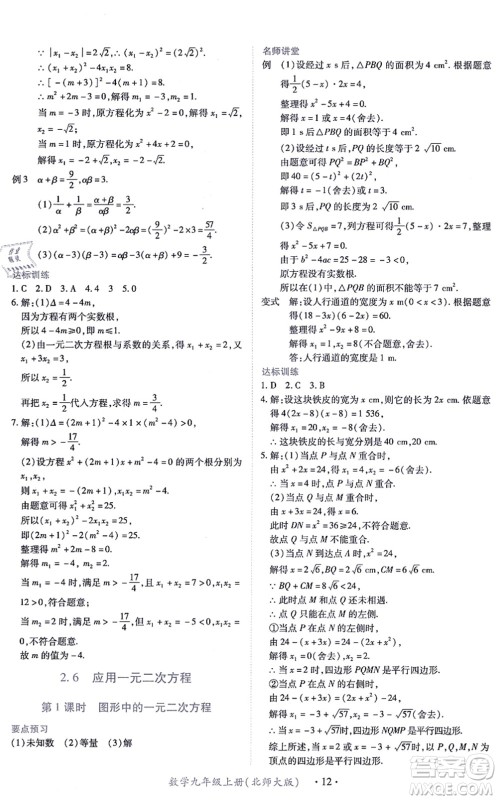 ∴ |x₁－x₂|＝2√2，∴ (x₁－x₂)²＝8，
∴ (x₁＋x₂)²－4x₁x₂＝8，
∴ [－(m＋3)]²－4(m＋1)＝8，
∴ m²＋2m－3＝0，解得 m₁＝－3，m₂＝1.
当 m＝－3 时，原方程化为 x²－2＝0，
解得 x₁＝√2，x₂＝－√2；
当 m＝1 时，原方程化为 x²＋4x＋2＝0，
解得 x₁＝－2＋√2，x₂＝－2－√2.
例 3 α＋β＝9/2，αβ＝3.
(1) 1/α＋1/β＝(α＋β)/αβ＝3/2.
(2) α²＋β²＝(α＋β)²－2αβ＝57/4.
(3) (3－α)(3－β)＝αβ－3(α＋β)＋9＝－3/2.
达标训练
1. C 2. D 3. A 4. 4 3 5. 0
6. 解：(1) Δ＝4－4m，
因为方程有两个实数根，
所以 4－4m≥0，解得 m≤1.
(2) 由一元二次方程根与系数的关系，得 x₁＋x₂＝2，
又 x₁＋3x₂＝3，
所以 x₂＝1/2.
再把 x₂＝1/2代入方程，求得 m＝3/4.
7. 解：(1) Δ＝(2m＋1)²－4×1×(m²－4)＝4m＋17＞0，
解得 m＞－17/4.
(2) 设方程 x²＋(2m＋1)x＋m²－4＝0 的两个根分别为
x₁，x₂，
则 x₁＋x₂＝－(2m＋1)，x₁x₂＝m²－4，
由题意可得 x₁²＋x₂²＝25，
即(2m＋1)²－2(m²－4)＝25，
整理得 m²＋2m－8＝0.
解得 m₁＝－4，m₂＝2.
当 m₁＝－4 时，满足 m＞－17/4，此时 x₁＋x₂＝7，x₁x₂＝
12＞0，符合题意；
当 m₂＝2 时，满足 m＞－17/4，此时 x₁＋x₂＝－5＜0，不
符合题意.
故 m 的值为－4.
2.6 应用一元二次方程
第 1 课时 图形中的一元二次方程
要点预习
(1)未知数 (2)等量 (3)解
名师讲堂
例 (1)设经过 x s 后，△PBQ 的面积等于 4 cm². 根据题意
得1/2(5－x)·2x＝4，
整理得 x²－5x＋4＝0，
解得 x₁＝1，x₂＝4(舍去).
即 1 s 后，△PBQ 的面积等于 4 cm².
(2) 设经过 t s 后，PQ 的长度等于 2√10 cm.
由题意可得(5－t)²＋(2t)²＝40，
即 5t²－10t－15＝0，
解得 t₁＝3，t₂＝－1(舍去).
即 3 s 后，PQ 的长度等于 2√10 cm.
(3) 令 S△PQB＝7，根据题意得1/2(5－x)·2x＝7，
整理得 x²－5x＋7＝0，
因为 b²－4ac＝25－28＝－3＜0，
原方程没有实数解.
所以△PQB 的面积不能等于 7 cm².
变式 解：设人行通道的宽度为 x m(0＜x＜3).
根据题意得(18－3x)(6－2x)＝60.
解得 x₁＝1，x₂＝8(不符合题意，舍去).
答：人行通道的宽度是 1 m.
达标训练
1. D 2. C 3. B
4. 解：设这块铁皮的宽为 x cm，则长为 2x cm. 依题意得
得 4(2x－8)(x－8)＝1 536，
解得 x₁＝32，x₂＝－20(舍去).
∴ 这块铁皮的长与宽分别是 40 cm，20 cm.
5. 解：(1)当点 P 与点 N 重合时，
由 x²＋2x＝24，得 x₁＝4，x₂＝－6(舍去).
∴ 当 x＝4 时，点 P 与点 N 重合.
(2) 当点 Q 与点 M 重合时，
由 x＋3x＝24，得 x＝6，
此时 DN＝x²＝36＞24，不符合题意.
故点 Q 与点 M 不能重合.
(3) 由(2)知，点 Q 与点 M 不能重合，
∵ BQ＋CM＝x＋3x＝4x＜24，
∴ 点 Q 只能在点 M 的左侧.
①当点 P 在点 N 的左侧时，
由 24－(x＋3x)＝24－(2x＋x²)，
解得 x₁＝0(舍去)，x₂＝2.
∴ 当 x＝2 时，四边形 PQMN 是平行四边形.
②当点 P 在点 N 的右侧时，
由 24－(x＋3x)＝(2x＋x²)－24，
解得 x₁＝－3＋√57，x₂＝－3－√57(舍去).
∴ 当 x＝－3＋√57时，四边形 NQMP 是平行四边形.
综上所述，当 x＝2 或 x＝－3＋√57时，以 P，Q，M，N 为
顶点的四边形是平行四边形.
数学九年级上册(北师大版) ·12·